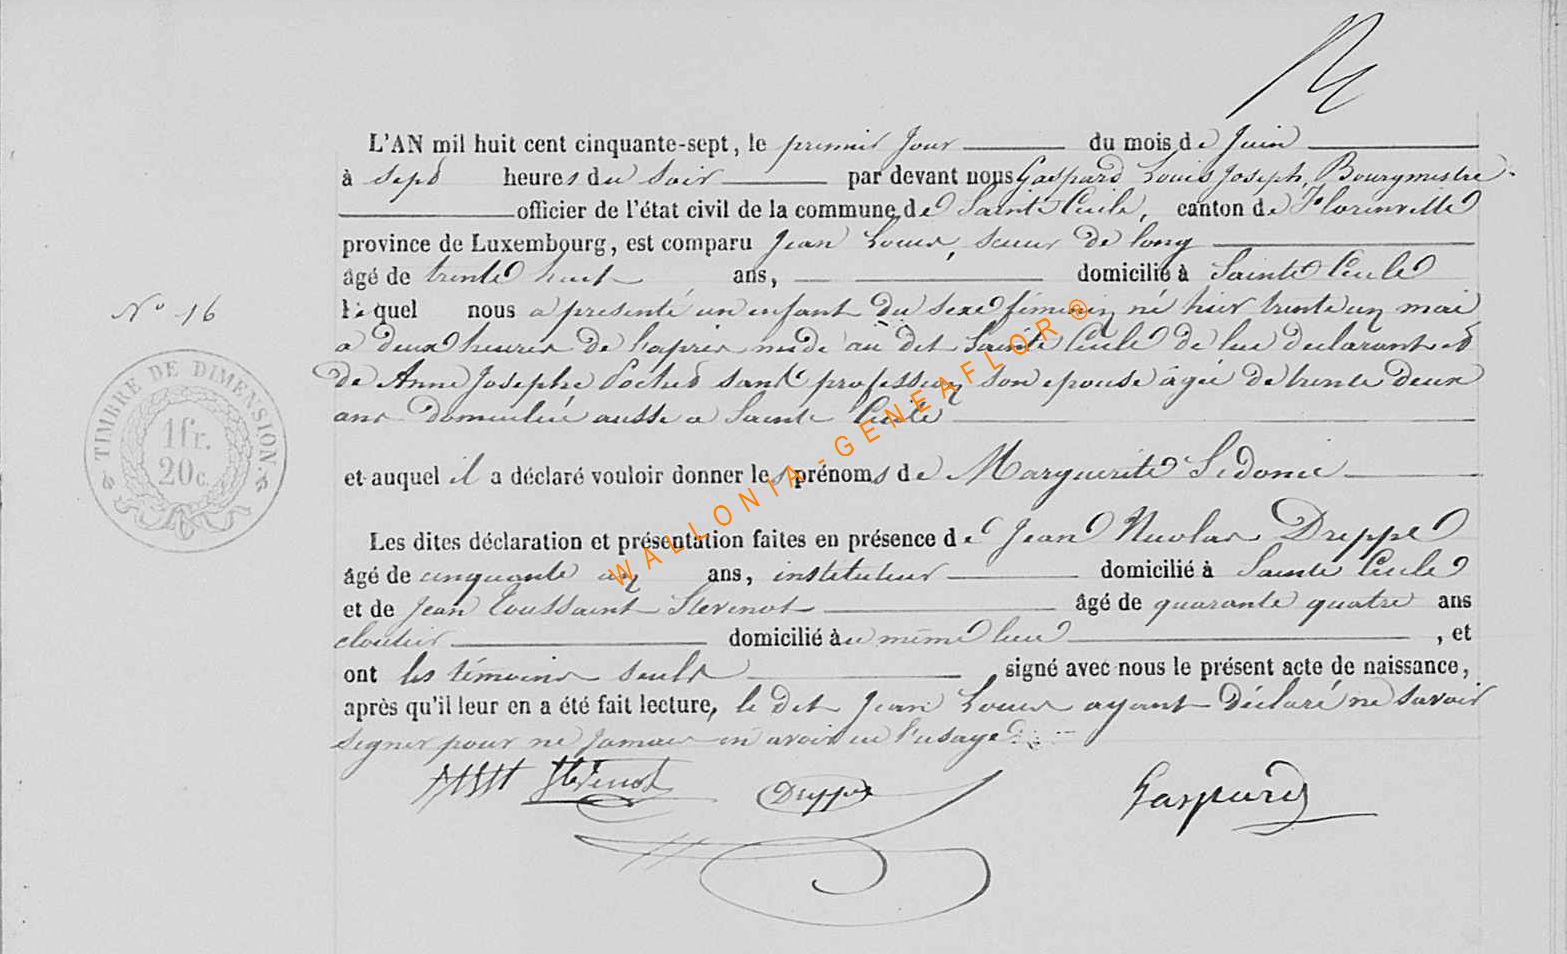 L'AN mil huit cent cinquante-sept, le premier jour du mois de Juin
à sept heures du soir par devant nous Gaspard Louis Joseph, Bourgmestre
officier de l'état civil de la commune de Sainte Cécile, canton de Florenville
province de Luxembourg, est comparu Jean Louis, scieur de long
âgé de trente huit ans, domicilié à Sainte Cécile
N° 16
lequel nous a presenté un enfant du sexe féminin né hier trente un mai
a deux heures de l'après midi au dit Sainte Cécile de lui declarant et
TIMBRE DE DIMENSION.
1 fr.
20 c.
de Anne Josephe sans profession son epouse âgée de trente deux
ans domiciliée aussi a Sainte Cécile
et auquel il a déclaré vouloir donner les prénoms de Marguerite Sidonie
Les dites déclaration et présentation faites en présence de Jean Nicolas Dreppe
âgé de cinquante un ans, instituteur domicilié à Sainte Cécile
et de Jean Toussaint Stevenot âgé de quarante quatre ans
cloutier domicilié au même lieu , et
ont les témoins seuls signé avec nous le présent acte de naissance,
après qu'il leur en a été fait lecture, le dit Jean Louis ayant déclaré ne savoir
signer pour ne jamais en avoir eu l'usage
Stevenot Dreppe Gaspard
WALLONIA-GENEAFLOR ®